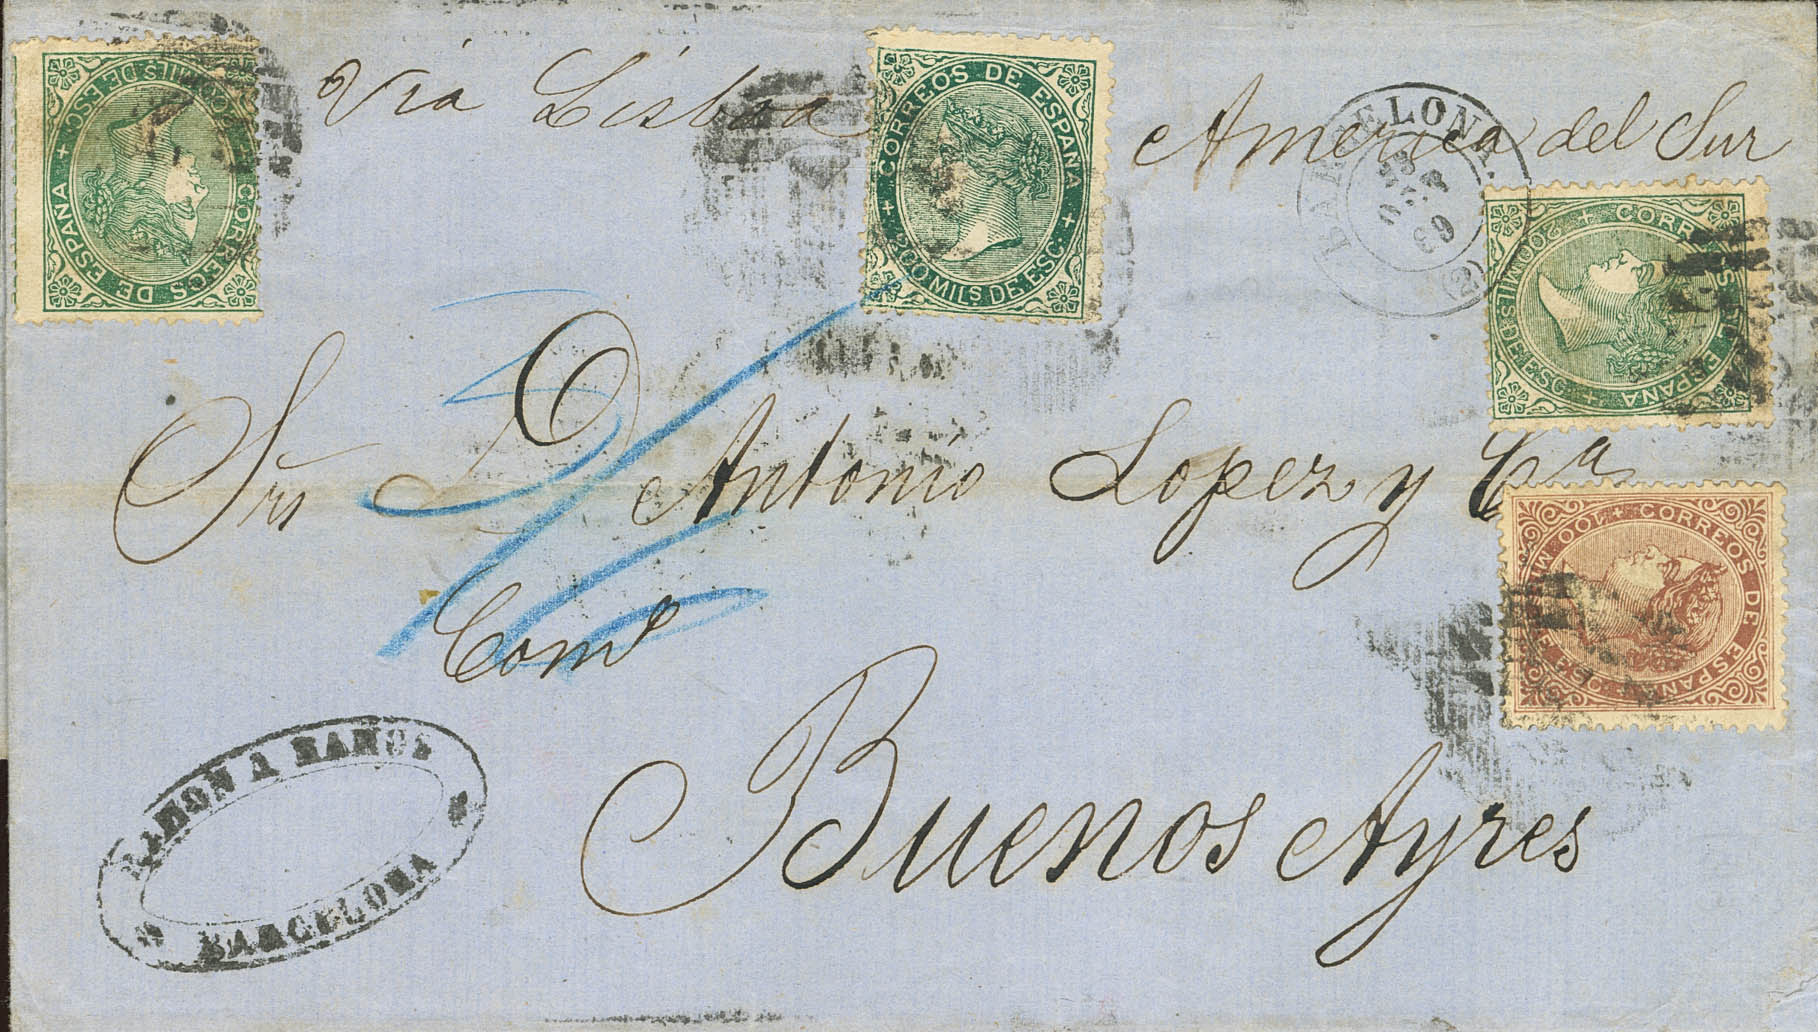 Via Lisboa America del Sur
CORREOS DE ESPAÑA
200 MILS DE ESC.
CORREOS DE ESPAÑA
200 MILS DE ESC.
BARCELONA
69
(2)
CORREOS DE ESPAÑA
200 MILS DE ESC.
Srs Dn Antonio Lopez y Ca
CORREOS DE ESPAÑA
100 MILS DE ESC.
Como
Buenos Ayres
RAMON A RAMOS
BARCELONA